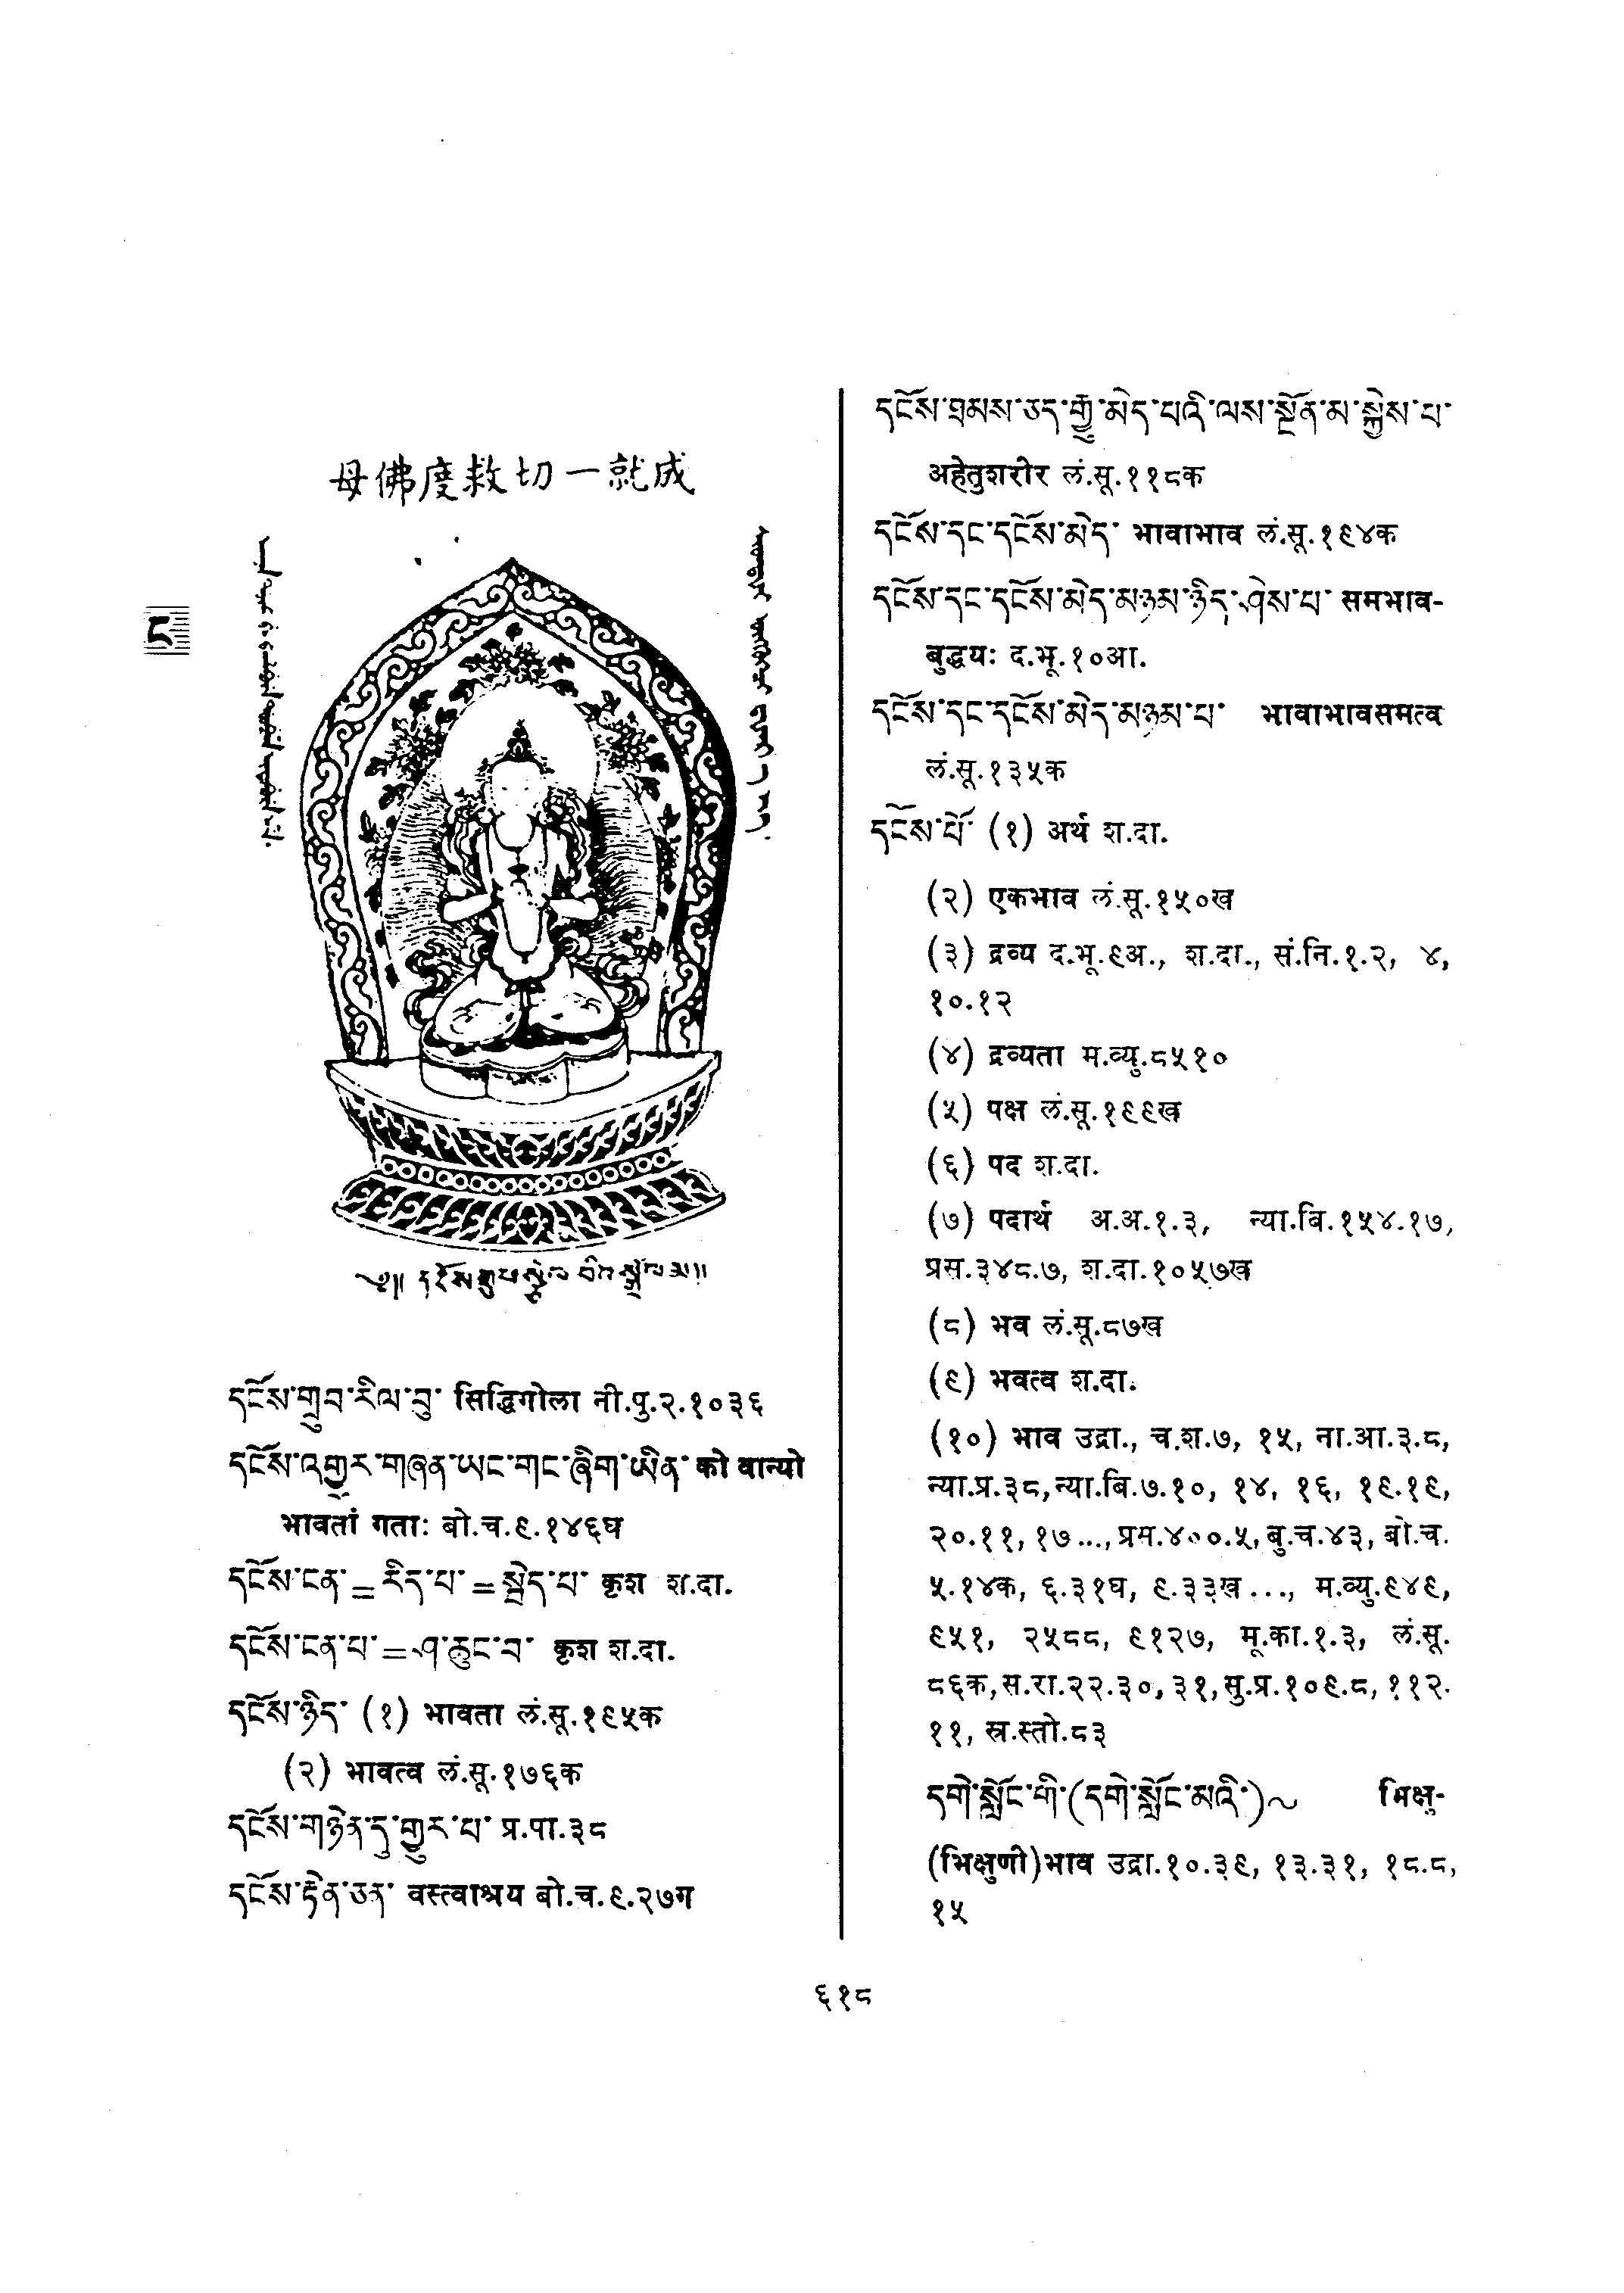 ང
母佛度救切一就成
༄༅།། དངོས་གྲུབ་སྟེར་བའི་སྒྲོལ་མ།།
དངོས་གྲུབ་རིལ་བུ་ सिद्धिगोला नी.पु.२.१०३६
དངོས་འགྱུར་གཞན་ཡང་གང་ཞིག་ཡིན་ को वान्यो
भावतां गताः बो.च.९.१४६घ
དངོས་ངན་=རིད་པ་=སྦེད་པ་ कृश श.दा.
དངོས་ངན་པ་=ཤ་ཆུང་བ་ कृश श.दा.
དངོས་ཉིད་ (१) भावता लं.सू.१९५क
(२) भावत्व लं.सू.१७६क
དངོས་གཉེན་དུ་གྱུར་པ་ प्र.पा.३८
དངོས་རྟེན་ཅན་ वस्त्वाश्रय बो.च.९.२७ग
དངོས་ཐམས་ཅད་རྒྱུ་མེད་པའི་ལས་སྔོན་མ་སྐྱེས་པ་
अहेतुशरीर लं.सू.११८क
དངོས་དང་དངོས་མེད་ भावाभाव लं.सू.१९४क
དངོས་དང་དངོས་མེད་མཉམ་ཉིད་ཤེས་པ་ समभाव-
बुद्धयः द.भू.१०आ.
དངོས་དང་དངོས་མེད་མཉམ་པ་ भावाभावसमत्व
लं.सू.१३५क
དངོས་པོ་ (१) अर्थ श.दा.
(२) एकभाव लं.सू.१५०ख
(३) द्रव्य द.भू.९अ., श.दा., सं.नि.१.२, ४,
१०.१२
(४) द्रव्यता म.व्यु.८५१०
(५) पक्ष लं.सू.१९९ख
(६) पद श.दा.
(७) पदार्थ अ.अ.१.३, न्या.बि.१५४.१७,
प्रस.३४८.७, श.दा.१०५७ख
(८) भव लं.सू.८७ख
(९) भवत्व श.दा.
(१०) भाव उद्रा., च.श.७, १५, ना.आ.३.८,
न्या.प्र.३८,न्या.बि.७.१०, १४, १६, १९.१९,
२०.११, १७..., प्रस.४००.५, बु.च.४३, बो.च.
५.१४क, ६.३१घ, ९.३३ख..., म.व्यु.९४९,
९५१, २५८८, ९१२७, मू.का.१.३, लं.सू.
८६क,स.रा.२२.३०, ३१,सु.प्र.१०९.८, ११२.
११, स्र.स्तो.८३
དགེ་སློང་གི་(དགེ་སློང་མའི་)~ भिक्षु-
(भिक्षुणी)भाव उद्रा.१०.३९, १३.३१, १८.८,
१५
६१८